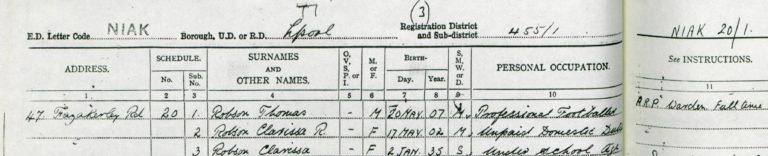 3
E.D. Letter Code NIAK Borough, U.D. or R.D. Lpool Registration District and Sub-district 455/1 NIAK 20/1.
ADDRESS. SCHEDULE. No. Sub. No. SURNAMES AND OTHER NAMES. O, V, S, P, or I. M. or F. BIRTH— Day. Year. S, M, W, or D. PERSONAL OCCUPATION. See INSTRUCTIONS.
1 2 3 4 5 6 7 8 9 10 11
47 Fazakerley Rd 20 1 Robson Thomas - M 20 MAY 07 M Professional Footballer A.R.P. Warden Full time
2 Robson Clarissa R. - F 17 MAY 02 M Unpaid Domestic
3 Robson Clarissa - F 2 JAN 35 S Under School Age